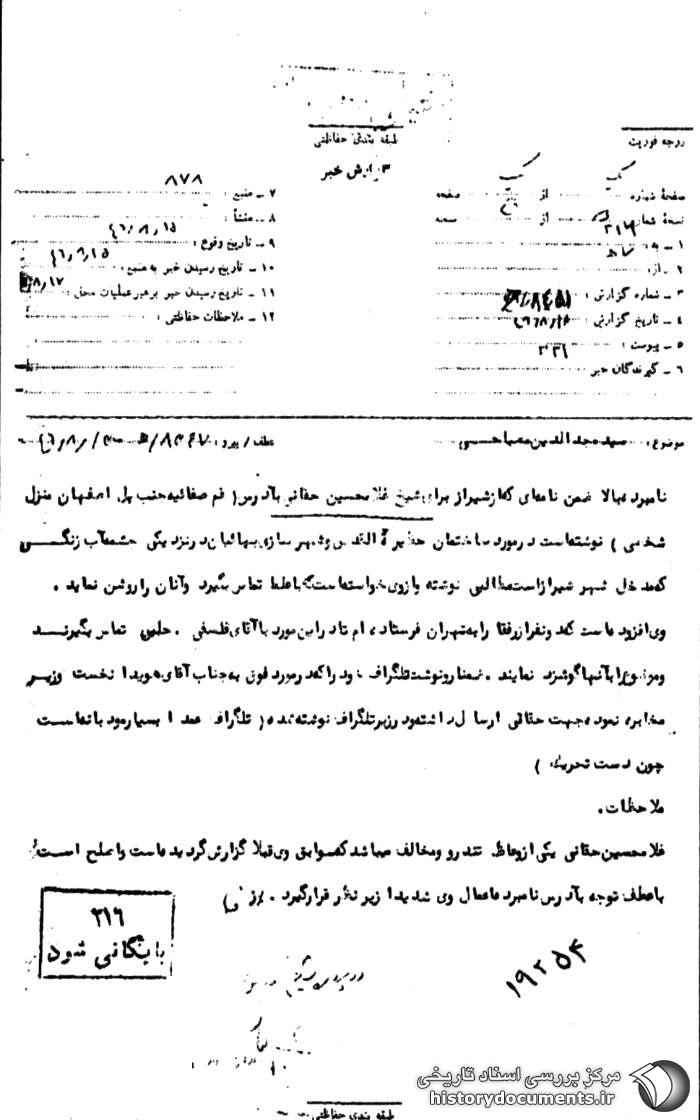 طبقه بندی حفاظتی
درجه فوریت
گزارش خبر
صفحه شماره یک از یک صفحه
نسخه شماره از نسخه
۱ ـ به : ۳۱۶
۲ ـ از :
۳ ـ شماره گزارش :
۴ ـ تاریخ گزارش :
۵ ـ پیوست :
۶ ـ گیرندگان خبر
۷ ـ منبع : ۸۷۸
۸ ـ منشأ :
۹ ـ تاریخ وقوع : ۴۶/۸/۱۵
۱۰ ـ تاریخ رسیدن خبر به منبع :
۱۱ ـ تاریخ رسیدن خبر برهبر عملیات محل : ۸/۱۷
۱۲ ـ ملاحظات حفاظتی :
موضوع : سیدمجدالدین مصباحی
عطف / پیرو :
نامبرده بالا ضمن نامه‌ای که از شیراز برای شیخ غلامحسین حقانی بآدرس ( قم صفائیه جنب پل اصفهان منزل
شخصی ) نوشته است در مورد ساختمان حظیرة القدس و شهر سازی بهائیان در نزدیکی چشمه آب زنگی
که مدخل شهر شیراز است مطالبی نوشته و از وی خواسته است که با علما تماس بگیرد و آنان را روشن نماید .
وی افزوده است که دو نفر از رفقا را به تهران فرستاده ام تا در این مورد با آقای فلسفی . حلبی تماس بگیرند
و موضوع را بآنها گوشزد نمایند . ضمنا رونوشت تلگراف خود را که در مورد فوق به جناب آقای هویدا نخست وزیر
مخابره نموده جهت حقانی ارسال داشته و در زیر تلگراف نوشته شده ( تلگراف عمدا بسیار مودبانه است
چون دست تحریک )
ملاحظات .
غلامحسین حقانی یکی از وعاظ تندرو و مخالف میباشد که سوابق وی قبلا گزارش گردیده است و اصلح است
با عطف توجه بآدرس نامبرده اعمال وی شدیدا زیر نظر قرار گیرد .
۳۱۶
بایگانی شود
۱۹۲۵۴
طبقه بندی حفاظتی
مرکز بررسی اسناد تاریخی
historydocuments.ir